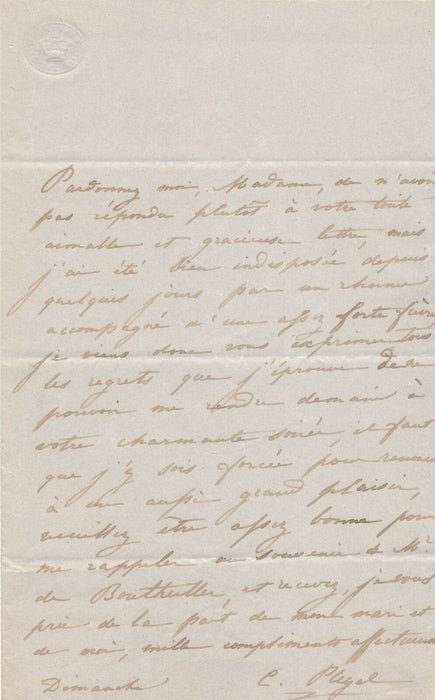 Pardonnez moi, Madame, de n'avoir
pas répondu plutôt à votre toute
aimable et gracieuse lettre, mais
j'ai été bien indisposée depuis
quelques jours par un rhume
accompagné d'une assez forte fièvre
je viens donc vous exprimer tous
les regrets que j'éprouve de ne
pouvoir me rendre demain à
votre charmante soirée, il faut
que j'y sois forcée pour renoncer
à un aussi grand plaisir,
veuillez être assez bonne pour
me rappeler au souvenir de Mr.
de Bouthillier, et recevez, je vous
prie de la part de mon mari et
de moi, mille compliments affectueux
Dimanche C. Pleyel